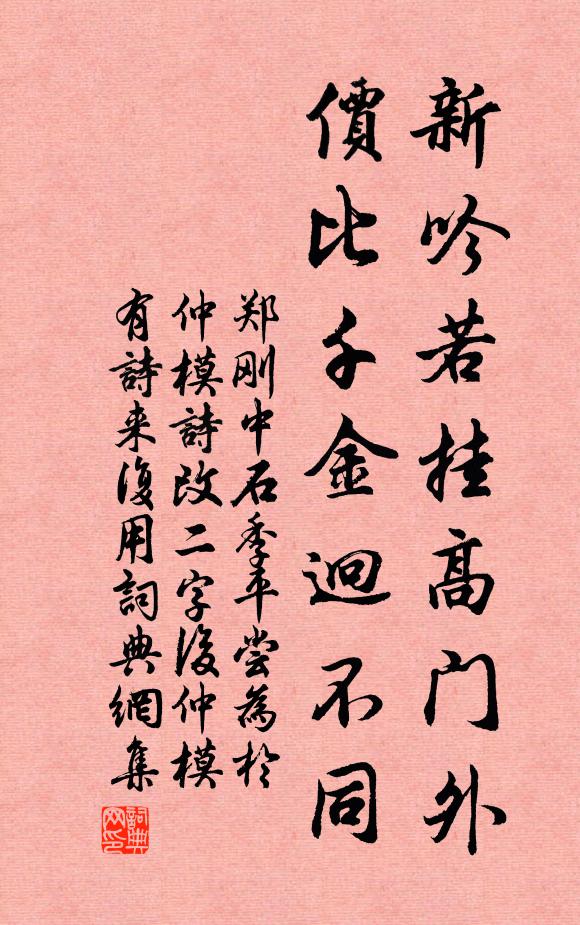 新吟若挂高门外
價比千金迥不同
郑刚中石季平尝為於
仲模詩改二字後仲模
有詩来復用詞典網集
詞典
网印